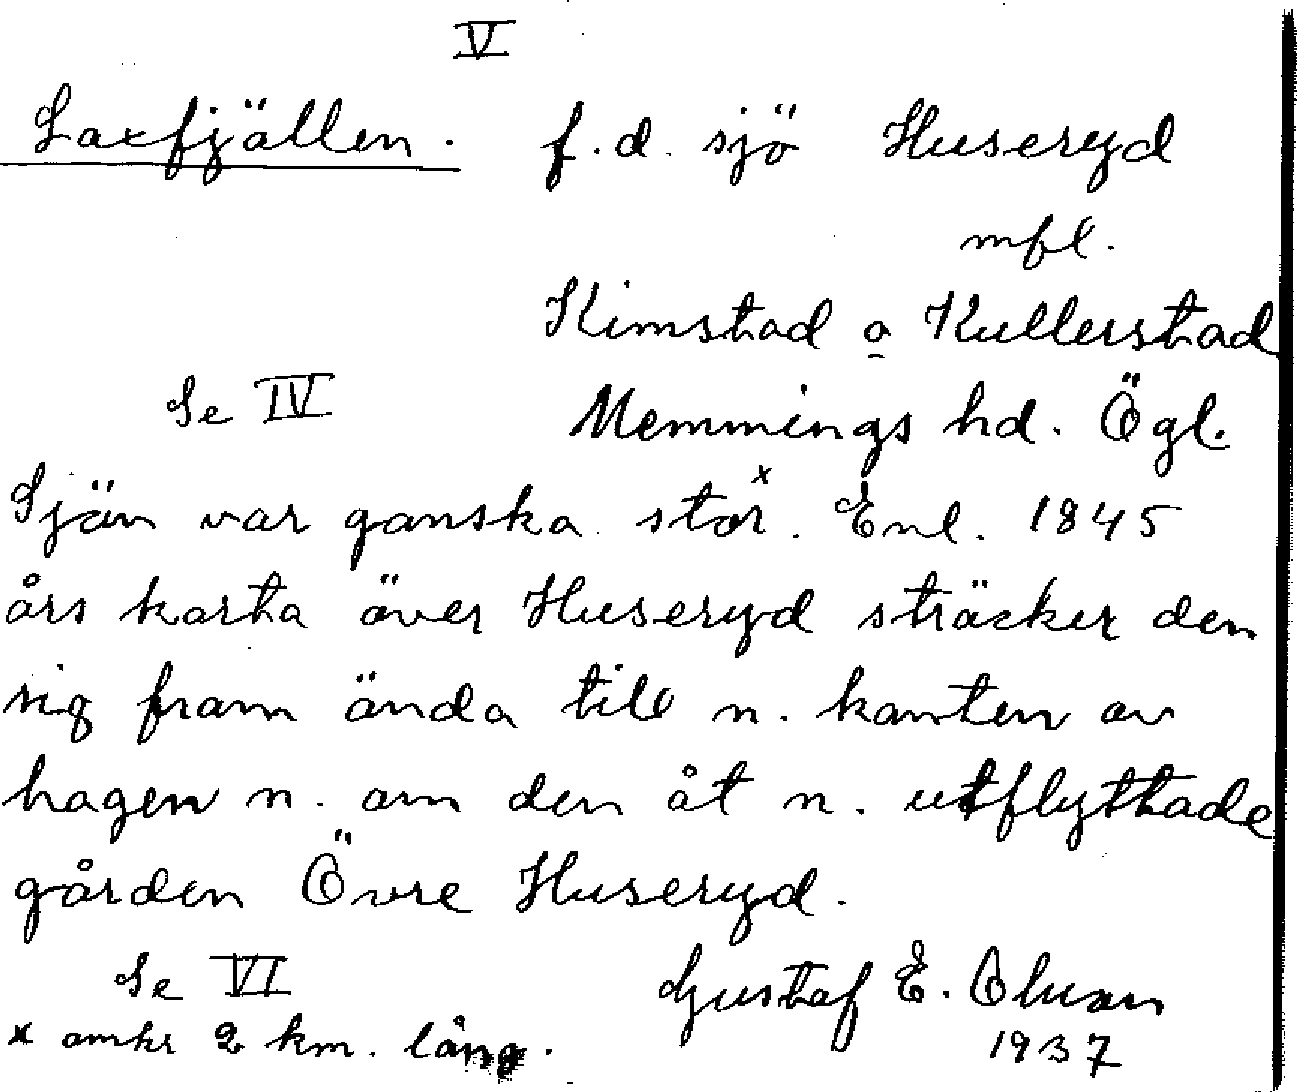 V
Laxfjällen. f.d. sjö Huseryd
mfl.
Kimstad o Kullerstad
Se IV Memmings hd. Ögl.
Sjön var ganska stor x. Enl. 1845
års karta över Huseryd sträcker den
sig fram ända till n. kanten av
hagen n. om den åt n. utflyttade
gården Övre Huseryd.
Se VI Gustaf E. Olsson
x omkr 2 km. lång. 1937